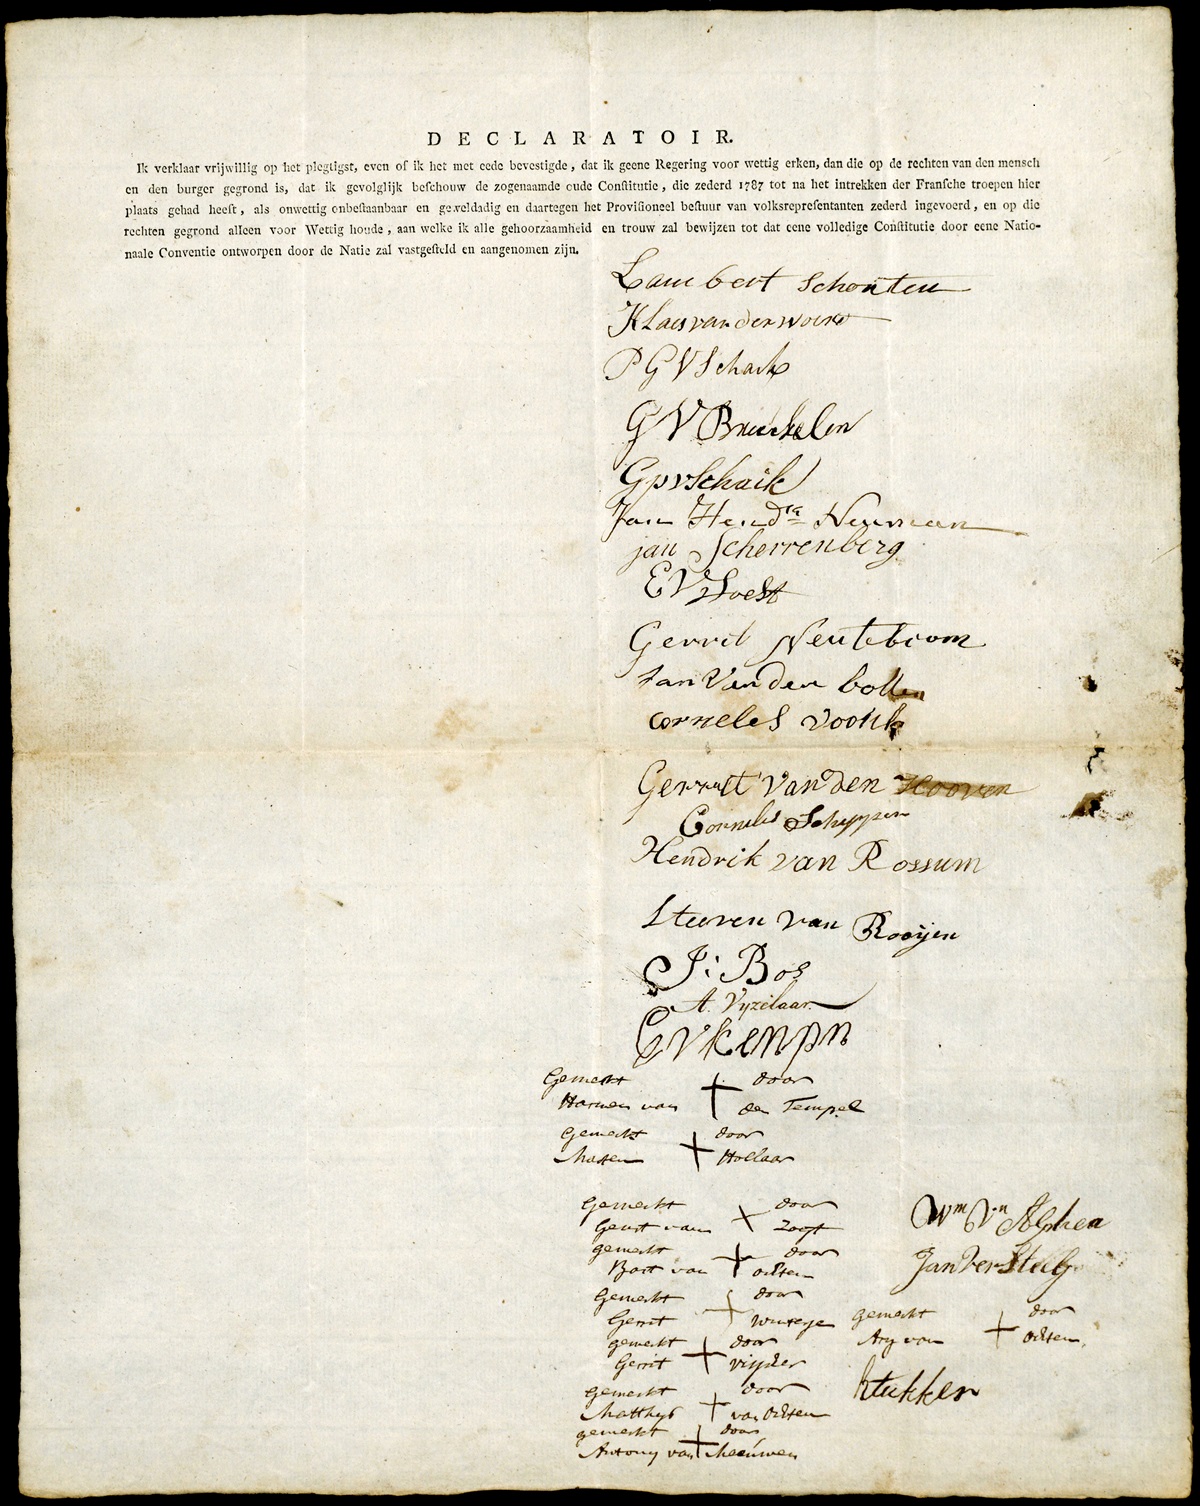 DECLARATOIR.
Ik verklaar vrijwillig op het plegtigst, even of ik het met eede bevestigde, dat ik geene Regering voor wettig erken, dan die op de rechten van den mensch
en den burger gegrond is, dat ik gevolglijk beschouw de zogenaamde oude Constitutie, die zederd 1787 tot na het intrekken der Fransche troepen hier
plaats gehad heeft, als onwettig onbestaanbaar en geweldadig en daartegen het Provisioneel bestuur van volksrepresentanten zederd ingevoerd, en op die
rechten gegrond alleen voor Wettig houde, aan welke ik alle gehoorzaamheid en trouw zal bewijzen tot dat eene volledige Constitutie door eene Natio-
naale Conventie ontworpen door de Natie zal vastgesteld en aangenomen zijn.
Lambert Schouten
Klaes van der
P G V Schaik
G V Breukelen
G p v Schaik
Jan Hendrk Neuman
jan Scherrenberg
E V Soest
Gerrit Neuteboom
Jan Van den bollen
Cornelis
Gerrit Van den Hooven
Cornelis Scheppen
Hendrik van Rossum
Steeven van Rooijen
J: Bos
A. Vijzelaar
G V Kempn
Gemerkt + door
Harmen van den Tempel
Gemerkt + door
Hollaar
Gemerkt × door
Geurt van Zogt
Wm Vn Alphen
gemerkt + door
Bart van odsten
Jan VerSteeg
Gemerkt + door
Gerrit
gemerkt + door
Ary van odsten
gemerkt + door
Gerrit
Stukker
Gemerkt + door
Matthys van odsten
gemerkt + door
Antony van Meeuwen